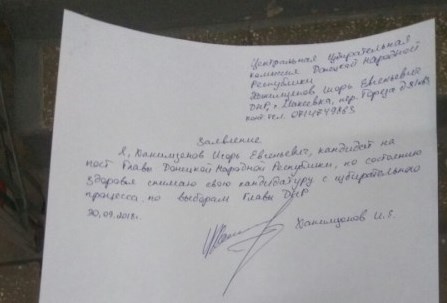 Центральная Избирательная
комиссия Донецкой Народной
Республики
Хакимзянов Игорь Евгеньевич
ДНР, г. Макеевка, пер. Города
конт. тел.
Заявление
Я, Хакимзянов Игорь Евгеньевич, кандидат на
пост Главы Донецкой Народной Республики, по состоянию
здоровья снимаю свою кандидатуру с избирательного
процесса по выборам Главы ДНР
30.09.2018г.
Хакимзянов И.Е.